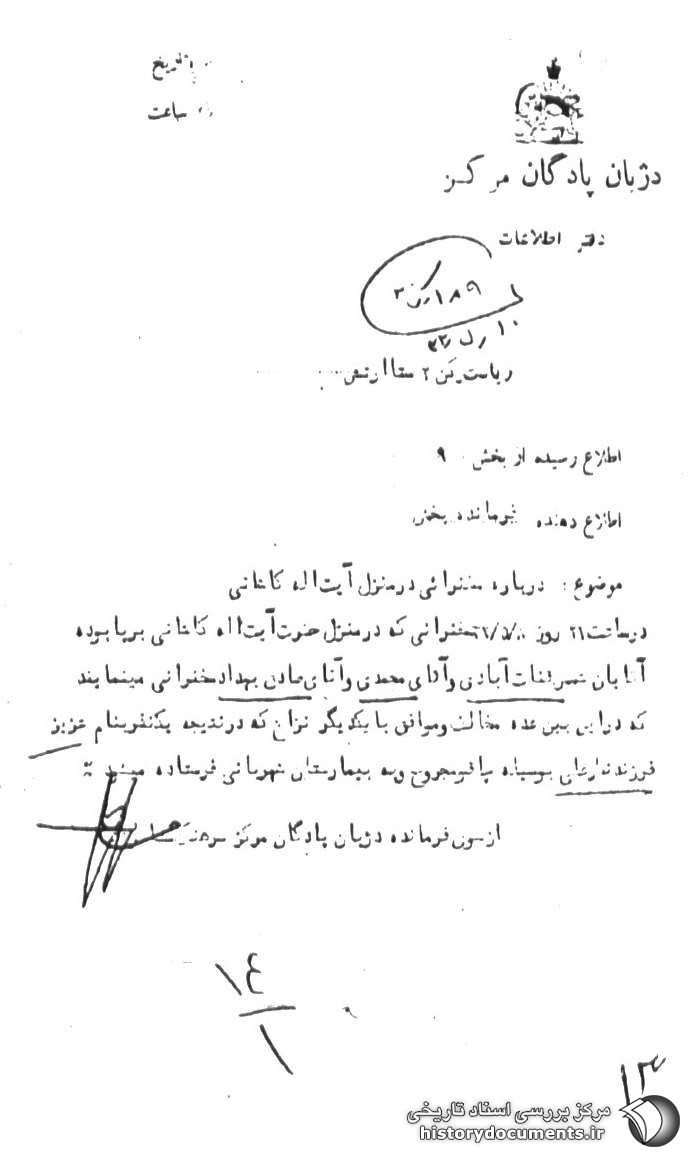 تاریخ
ساعت
دژبان پادگان مرکز
دفتر اطلاعات
ریاست رکن ۲ ستاد ارتش
اطلاع رسیده از بخش ۹
اطلاع دهنده فرمانده بخش
موضوع: درباره سخنرانی درمنزل آیت اله کاشانی
درساعت ۲۱ روز سخنرانی که درمنزل حضرت آیت اله کاشانی برپا بوده
آقایان شمس قنات آبادی و آقای محمدی و آقای صادق بهداد سخنرانی مینمایند
که دراین بین عده مخالف وموافق با یکدیگر نزاع که درنتیجه یکنفر بنام عزیز
فرزند بوسیله چاقو مجروح وبه بیمارستان شهربانی فرستاده میشود
ازسوی فرمانده دژبان پادگان مرکز سرهنگ
۱۴
۱
۱۳
مرکز بررسی اسناد تاریخی
historydocuments.ir